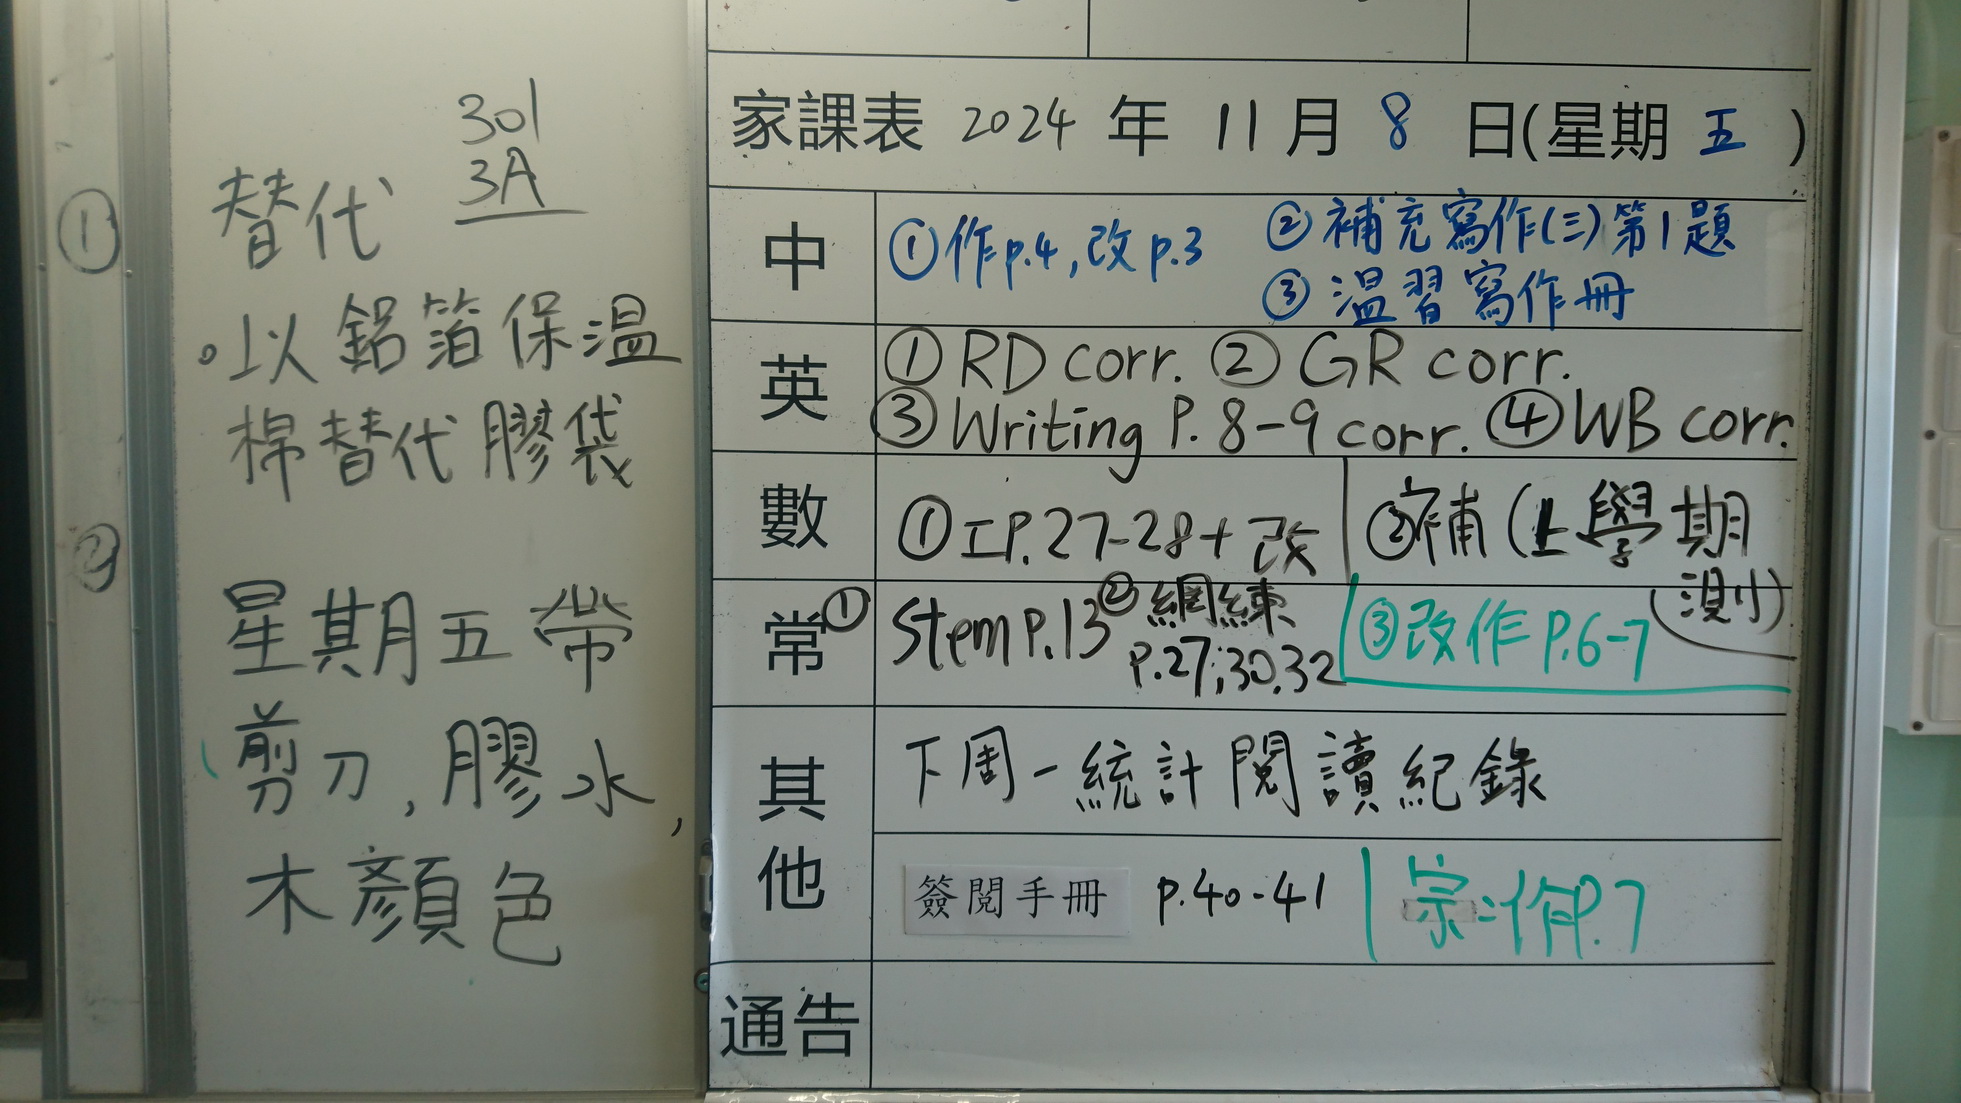 301
3A
① 替代
。以鋁箔保溫
棉替代膠袋
②
星期五帶
剪刀,膠水,
木顏色
家課表 2024 年 11 月 8 日(星期 五 )
中 ①作p.4,改p.3 ②補充寫作(三)第1題
③溫習寫作冊
英 ①RD corr. ②GR corr.
③Writing P.8-9 corr. ④WB corr.
數 ①工P.27-28+改 ②補(上學期
測)
常 ①Stem P.13 ②網練
P.27;30.32
③改作P.6-7
其他 下周一統計閱讀紀錄
簽閱手冊 p.40-41 宗:作P.7
通告